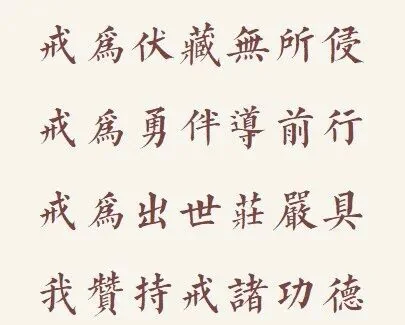 戒為伏藏無所侵
戒為勇伴導前行
戒為出世莊嚴具
我贊持戒諸功德